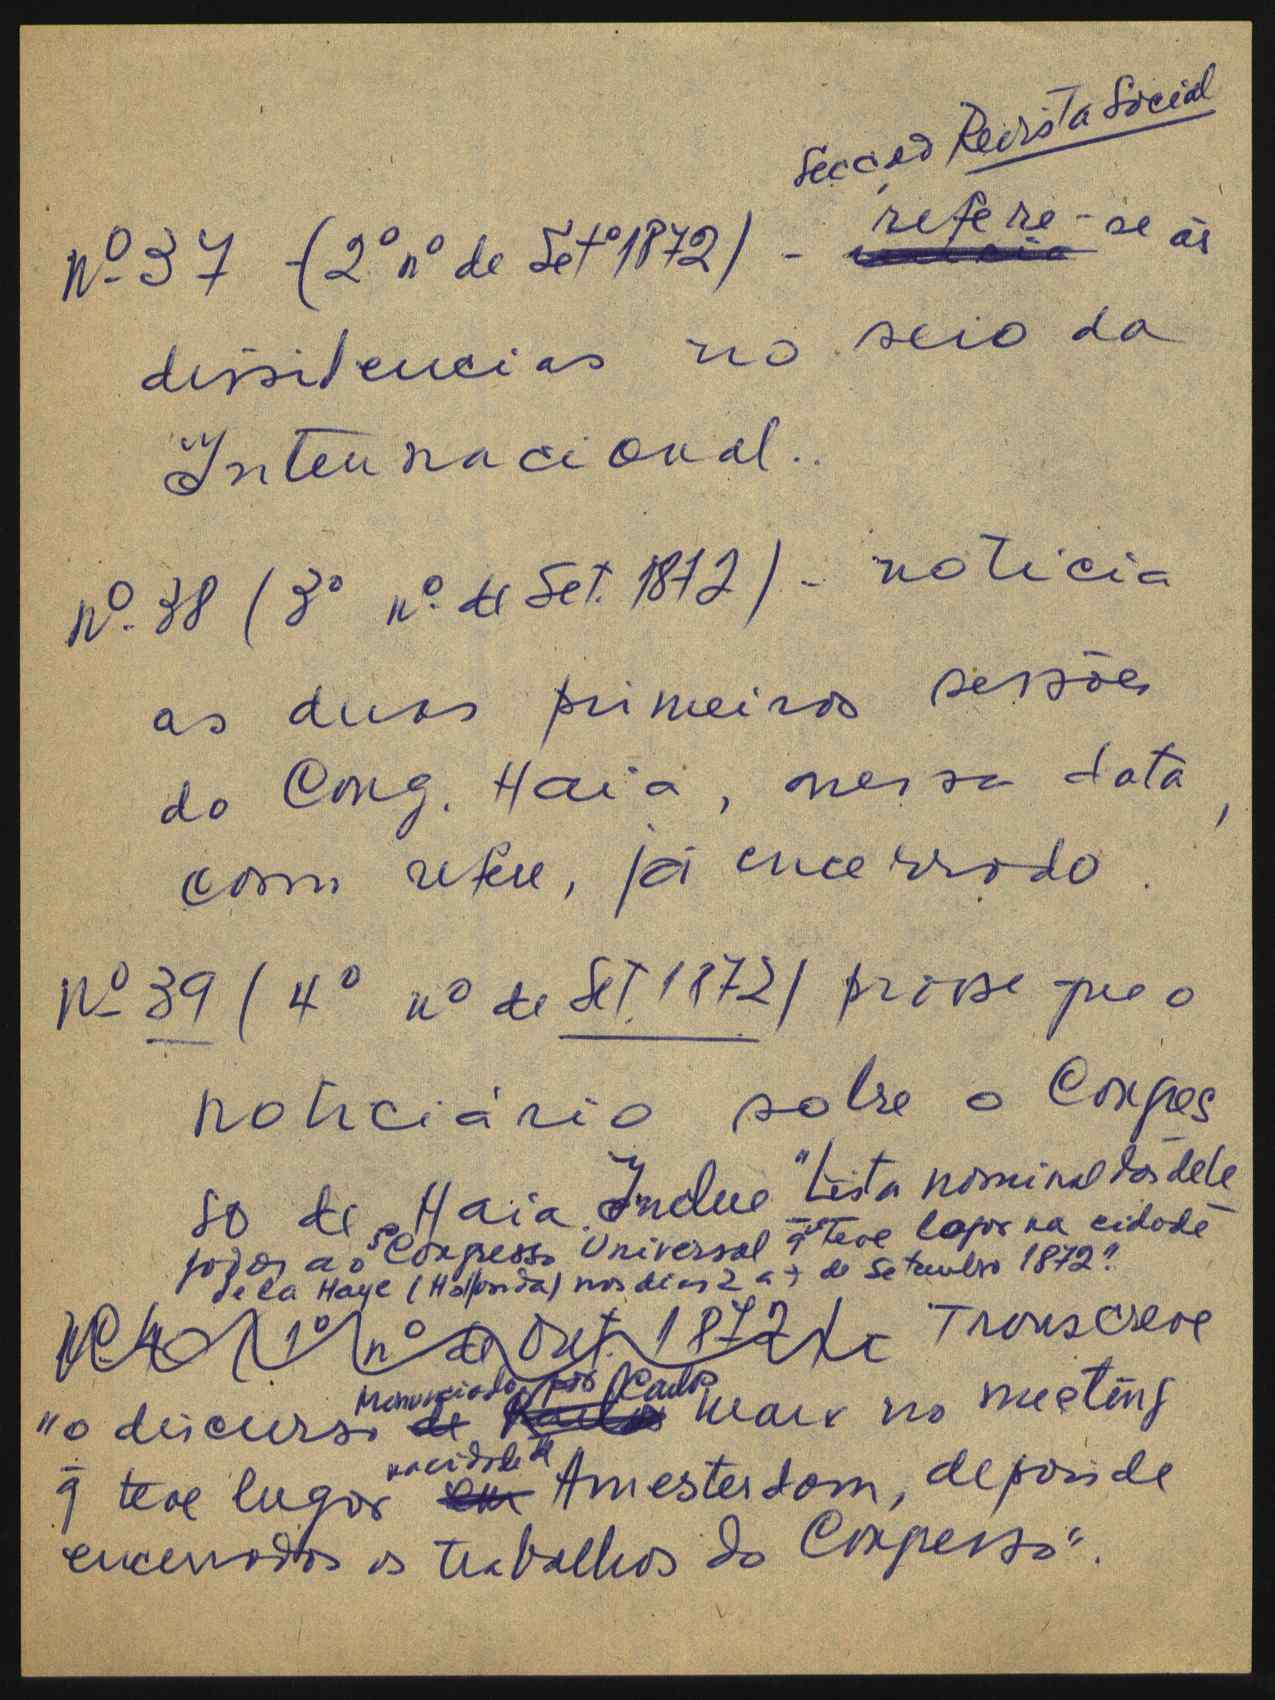 Secção Revista Social
Nº 37 - (2º nº de Setº 1872) - refere-se às
dissidencias no seio da
Internacional..
Nº 38 (3º nº de Set. 1872) - noticia
as duas primeiras sessões
do Cong. Haia, nessa data,
com refere, já encerrado.
Nº 39 (4º nº de Set. 1872) prosse gue o
noticiário sobre o Congres
so de Haia. Inclue "Lista nominal dos dele
gados ao 5º Congresso Universal q̃ teve logar na cidade
de La Haye (Hollanda) nos dias 2 a 7 de Setembro 1872".
Nº 40 (1º nº de Out. 1872) Transcreve
"o discurso pronunciado por Carlos Marx no meeting
q̃ teve lugar na cidade de Amesterdam, depois de
encerrados os trabalhos do Congresso".